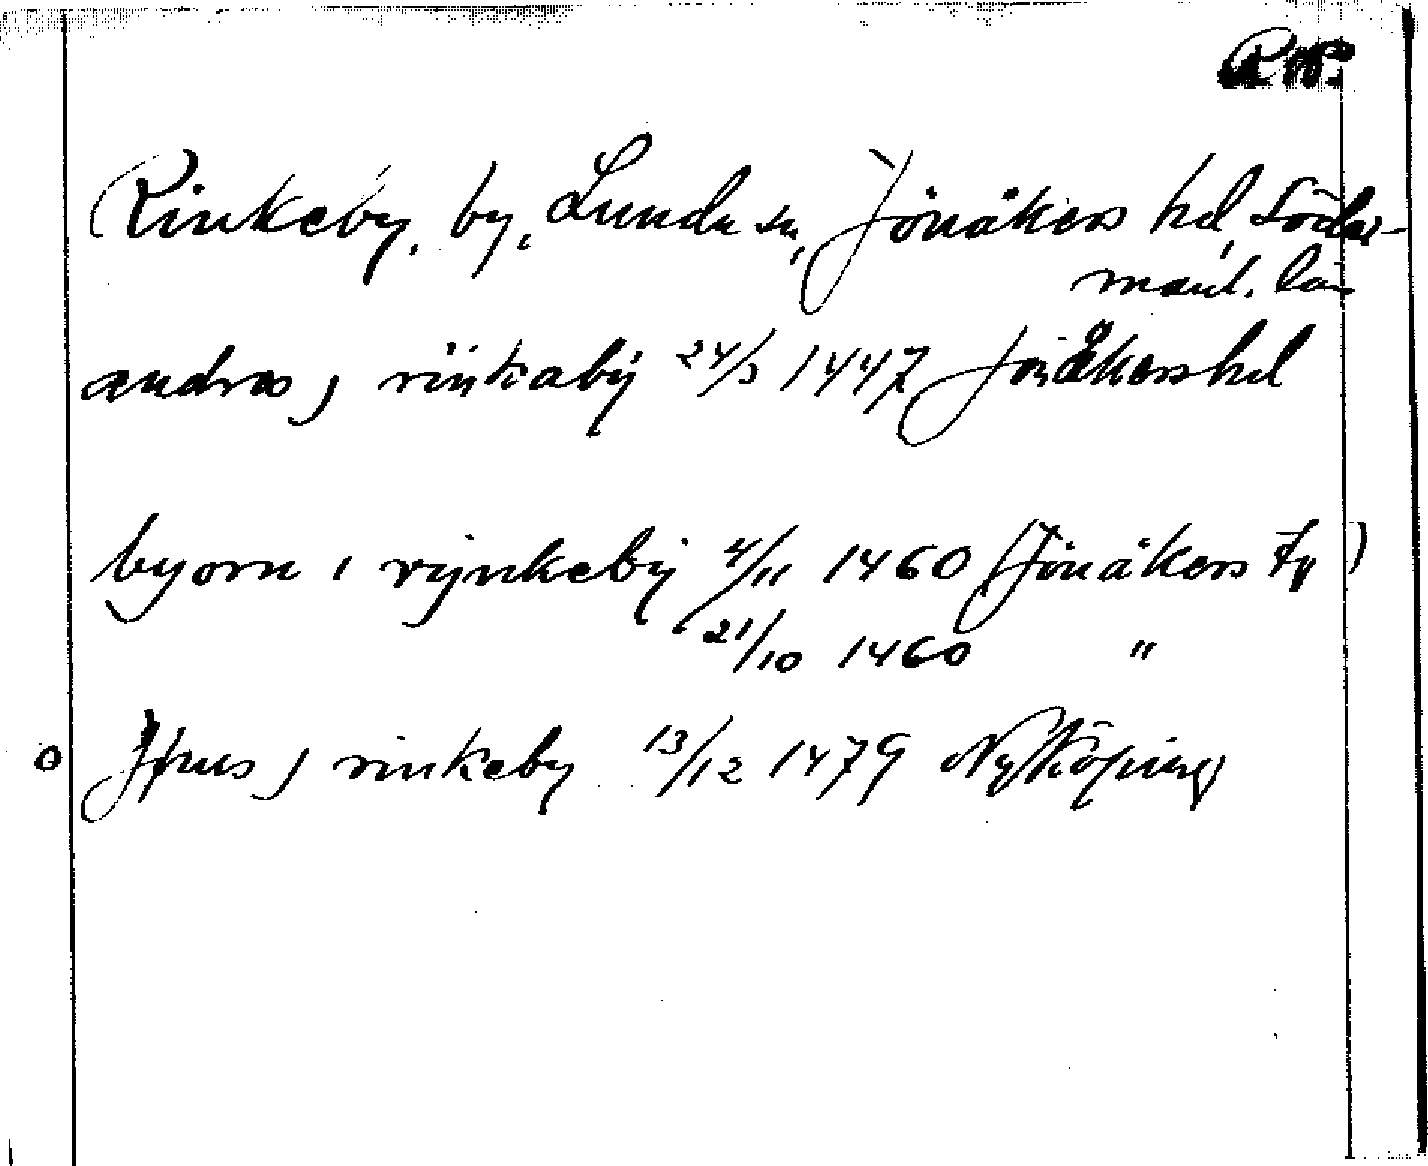 Rinkeby, by, Lunda sn, Jönåkers hd, Söder-
manl. län
andres j rinkaby 24/3 1447 Jönåkers hd
byorn i rynkeby 4/11 1460 (Jönåkers ty)
21/10 1460 "
o Jpus j rinkeby 13/12 1479 Nyköping